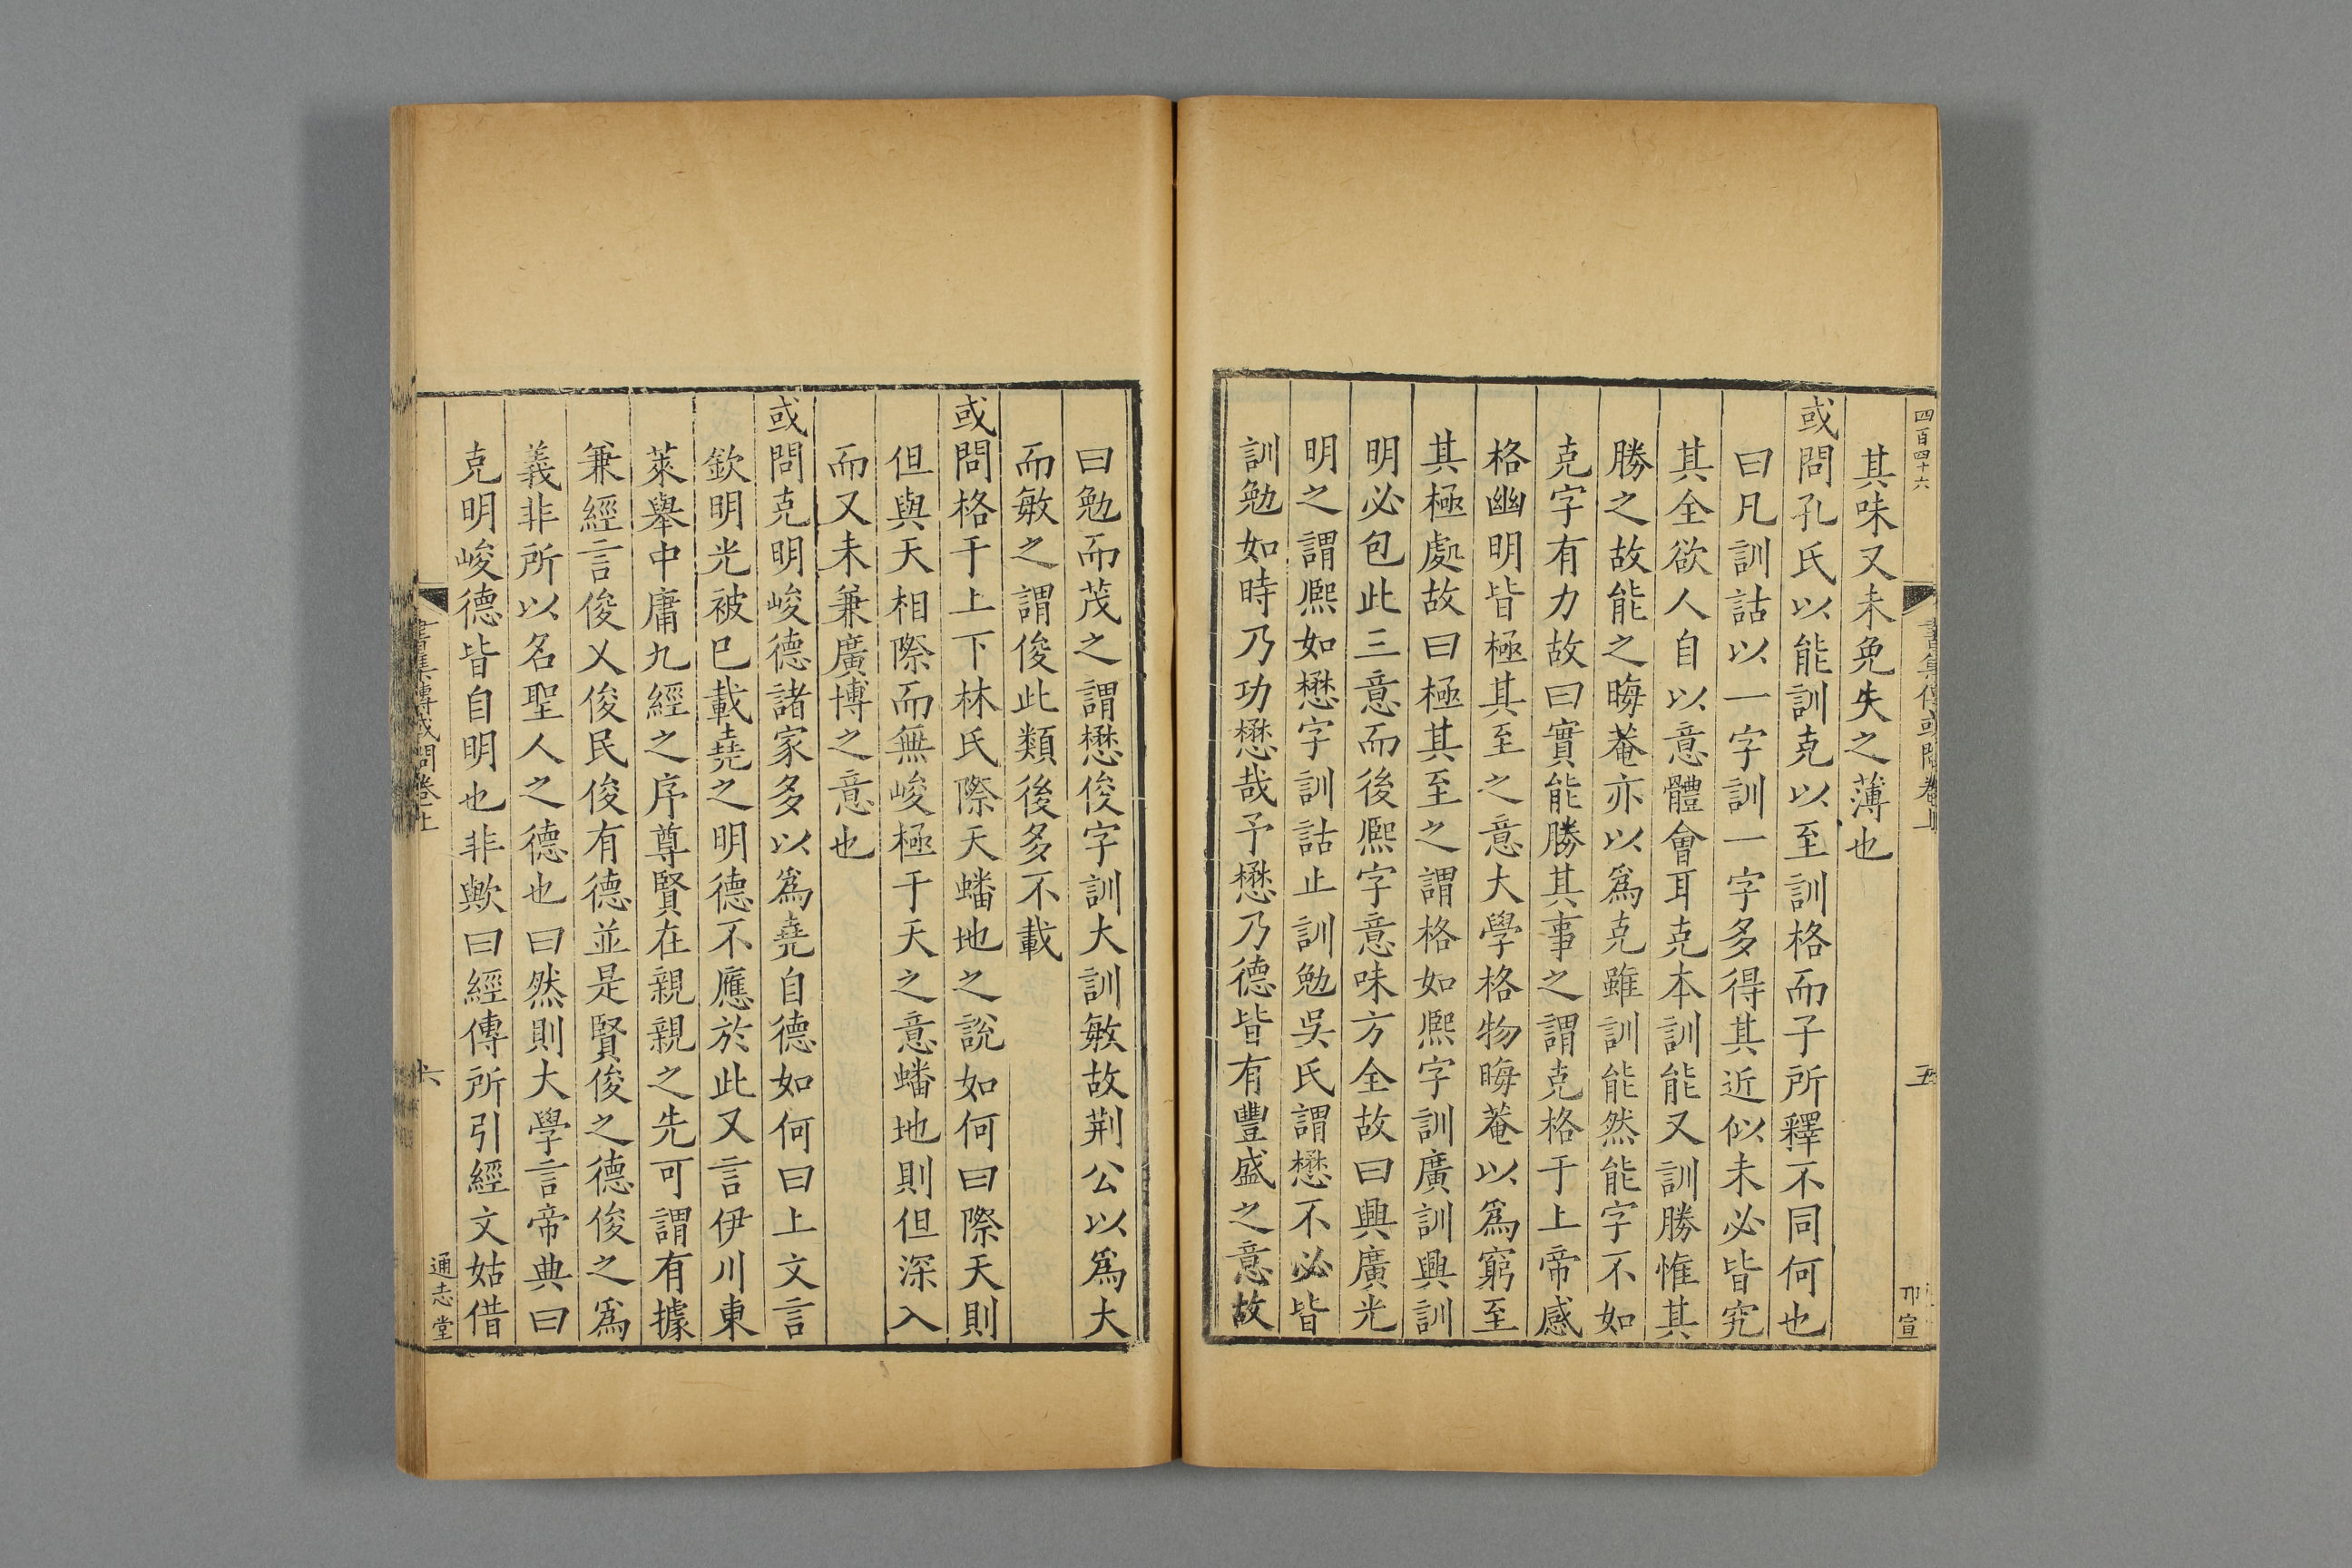 四百四十六
書集傳或問卷上
五
卬宣
其味又未免失之薄也
或問孔氏以能訓克以至訓格而子所釋不同何也
曰凡訓詁以一字訓一字多得其近似未必皆究
其全欲人自以意體會耳克本訓能又訓勝惟其
勝之故能之晦菴亦以爲克雖訓能然能字不如
克字有力故曰實能勝其事之謂克格于上帝感
格幽明皆極其至之意大學格物晦菴以爲窮至
其極處故曰極其至之謂格如熈字訓廣訓興訓
明必包此三意而後熈字意味方全故曰興廣光
明之謂熈如懋字訓詁止訓勉吳氏謂懋不必皆
訓勉如時乃功懋哉予懋乃德皆有豐盛之意故
曰勉而茂之謂懋俊字訓大訓敏故荆公以爲大
而敏之謂俊此類後多不載
或問格于上下林氏際天蟠地之說如何曰際天則
但與天相際而無峻極于天之意蟠地則但深入
而又未兼廣博之意也
或問克明峻德諸家多以爲堯自德如何曰上文言
欽明光被巳載堯之明德不應於此又言伊川東
萊舉中庸九經之序尊賢在親親之先可謂有據
兼經言俊乂俊民俊有德並是賢俊之德俊之爲
義非所以名聖人之德也曰然則大學言帝典曰
克明峻德皆自明也非歟曰經傳所引經文姑借
書集傳或問卷上
六
通志堂